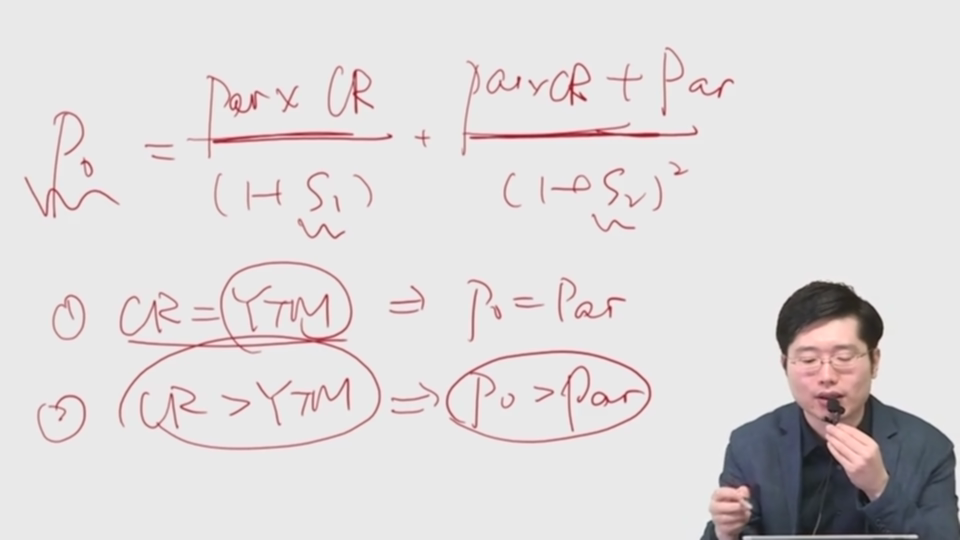 P₀ = Par x CR / (1+S₁) + par x CR + Par / (1+S₂)²
① CR = YTM ⇒ P₀ = Par
② CR > YTM ⇒ P₀ > Par